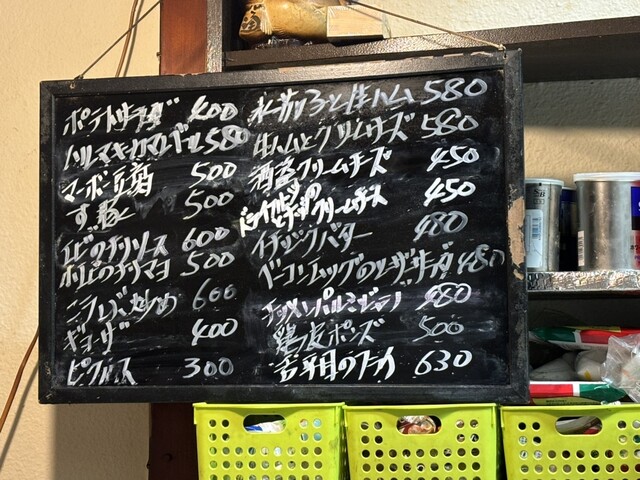 ポテトサラダ 400
ハルマキ 580
マーボ豆腐 500
すぶた 500
エビのチリソース 600
エビのチリマヨ 500
ニラレバ炒め 600
ギョーザ 400
ピクルス 300
水茄子と生ハム 580
生ハムとクリームチーズ 580
酒盗クリームチーズ 450
ドライトマトのクリームチーズ 450
イチジクバター 480
ベーコンエッグのシーザーサラダ 480
480
鶏皮ポンズ 500
舌平目のフライ 630